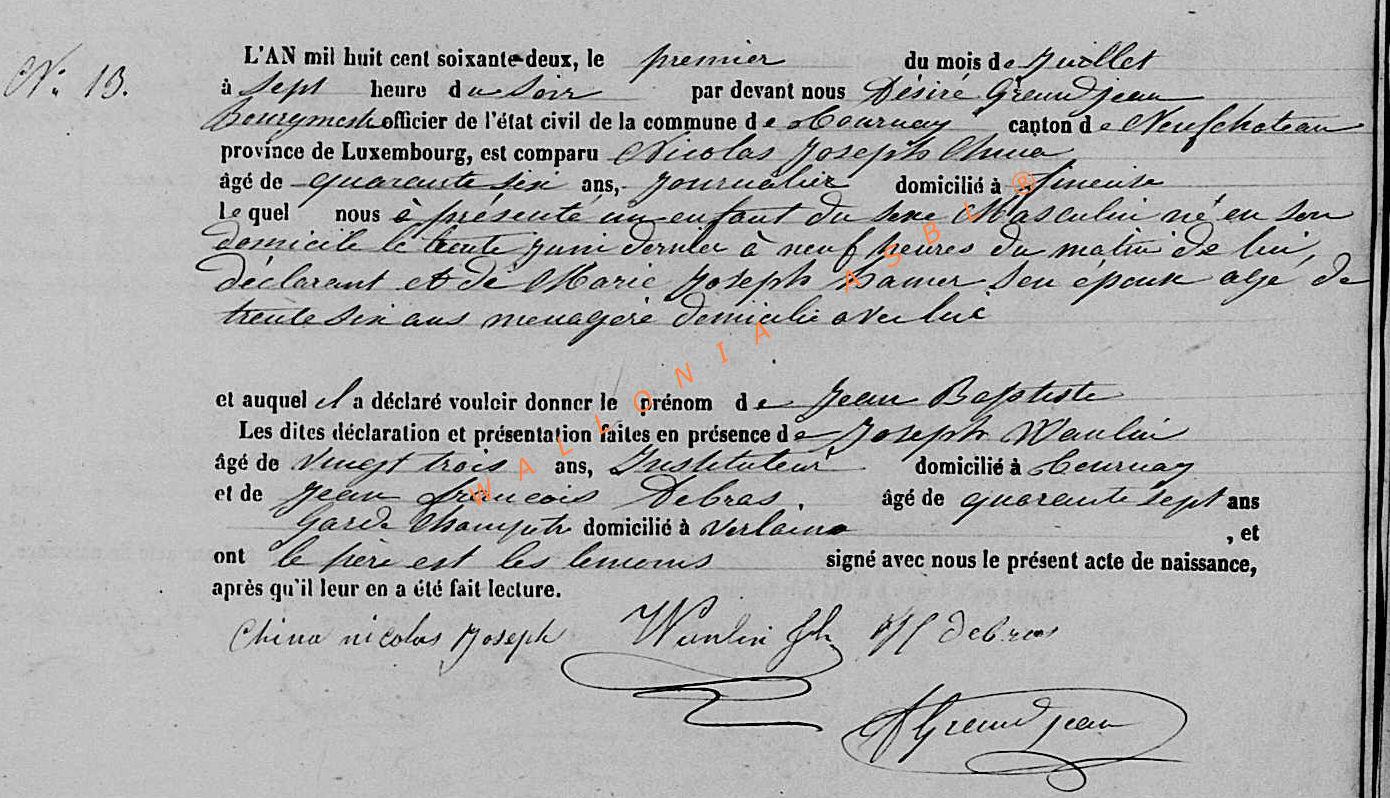 N: 13.
L'AN mil huit cent soixante-deux, le premier du mois de juillet
à sept heure du soir par devant nous Désiré Grandjean
Bourgmestre officier de l'état civil de la commune de Tournay canton de Neufchateau
province de Luxembourg, est comparu Nicolas Joseph China
âgé de quarante six ans, journalier domicilié à Fineuse
lequel nous à présenté un enfant du sexe Masculin né en son
domicile le trente juin dernier à neuf heures du matin de lui,
déclarant et de Marie Joseph son épouse agé de
trente six ans menagère domicilié avec lui
et auquel il a déclaré vouloir donner le prénom de Jean Baptiste
Les dites déclaration et présentation faites en présence de Joseph Wanlin
âgé de vingt trois ans, Instituteur domicilié à Tournay
et de Jean francois Debras. âgé de quarante sept ans
Garde Champetre domicilié à Verlaine , et
ont le père est les temoins signé avec nous le présent acte de naissance,
après qu'il leur en a été fait lecture.
China nicolas Joseph Wanlin Jh debras
D Grandjean
WALLONIA ASBL ®